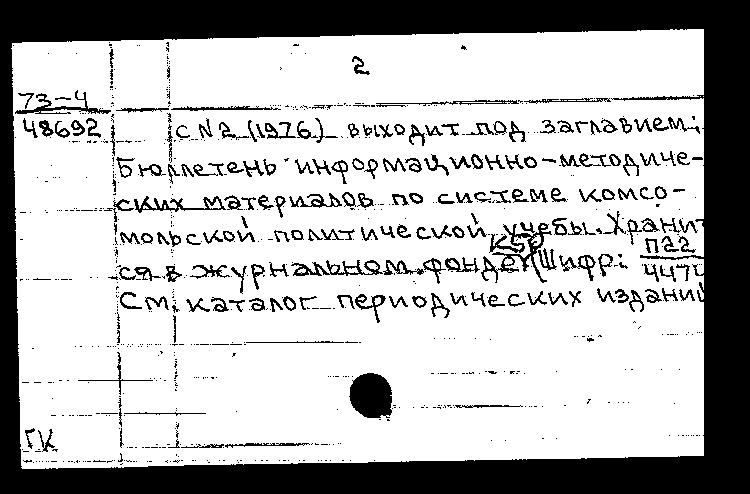 2
73-4
48692
С N2 (1976) выходит под заглавием:
Бюллетень информационно-методиче-
ских материалов по системе комсо-
мольской политической учебы. Хранит
ся в журнальном фонде (Шифр: П22
4474
См. каталог периодических изданий
ГК